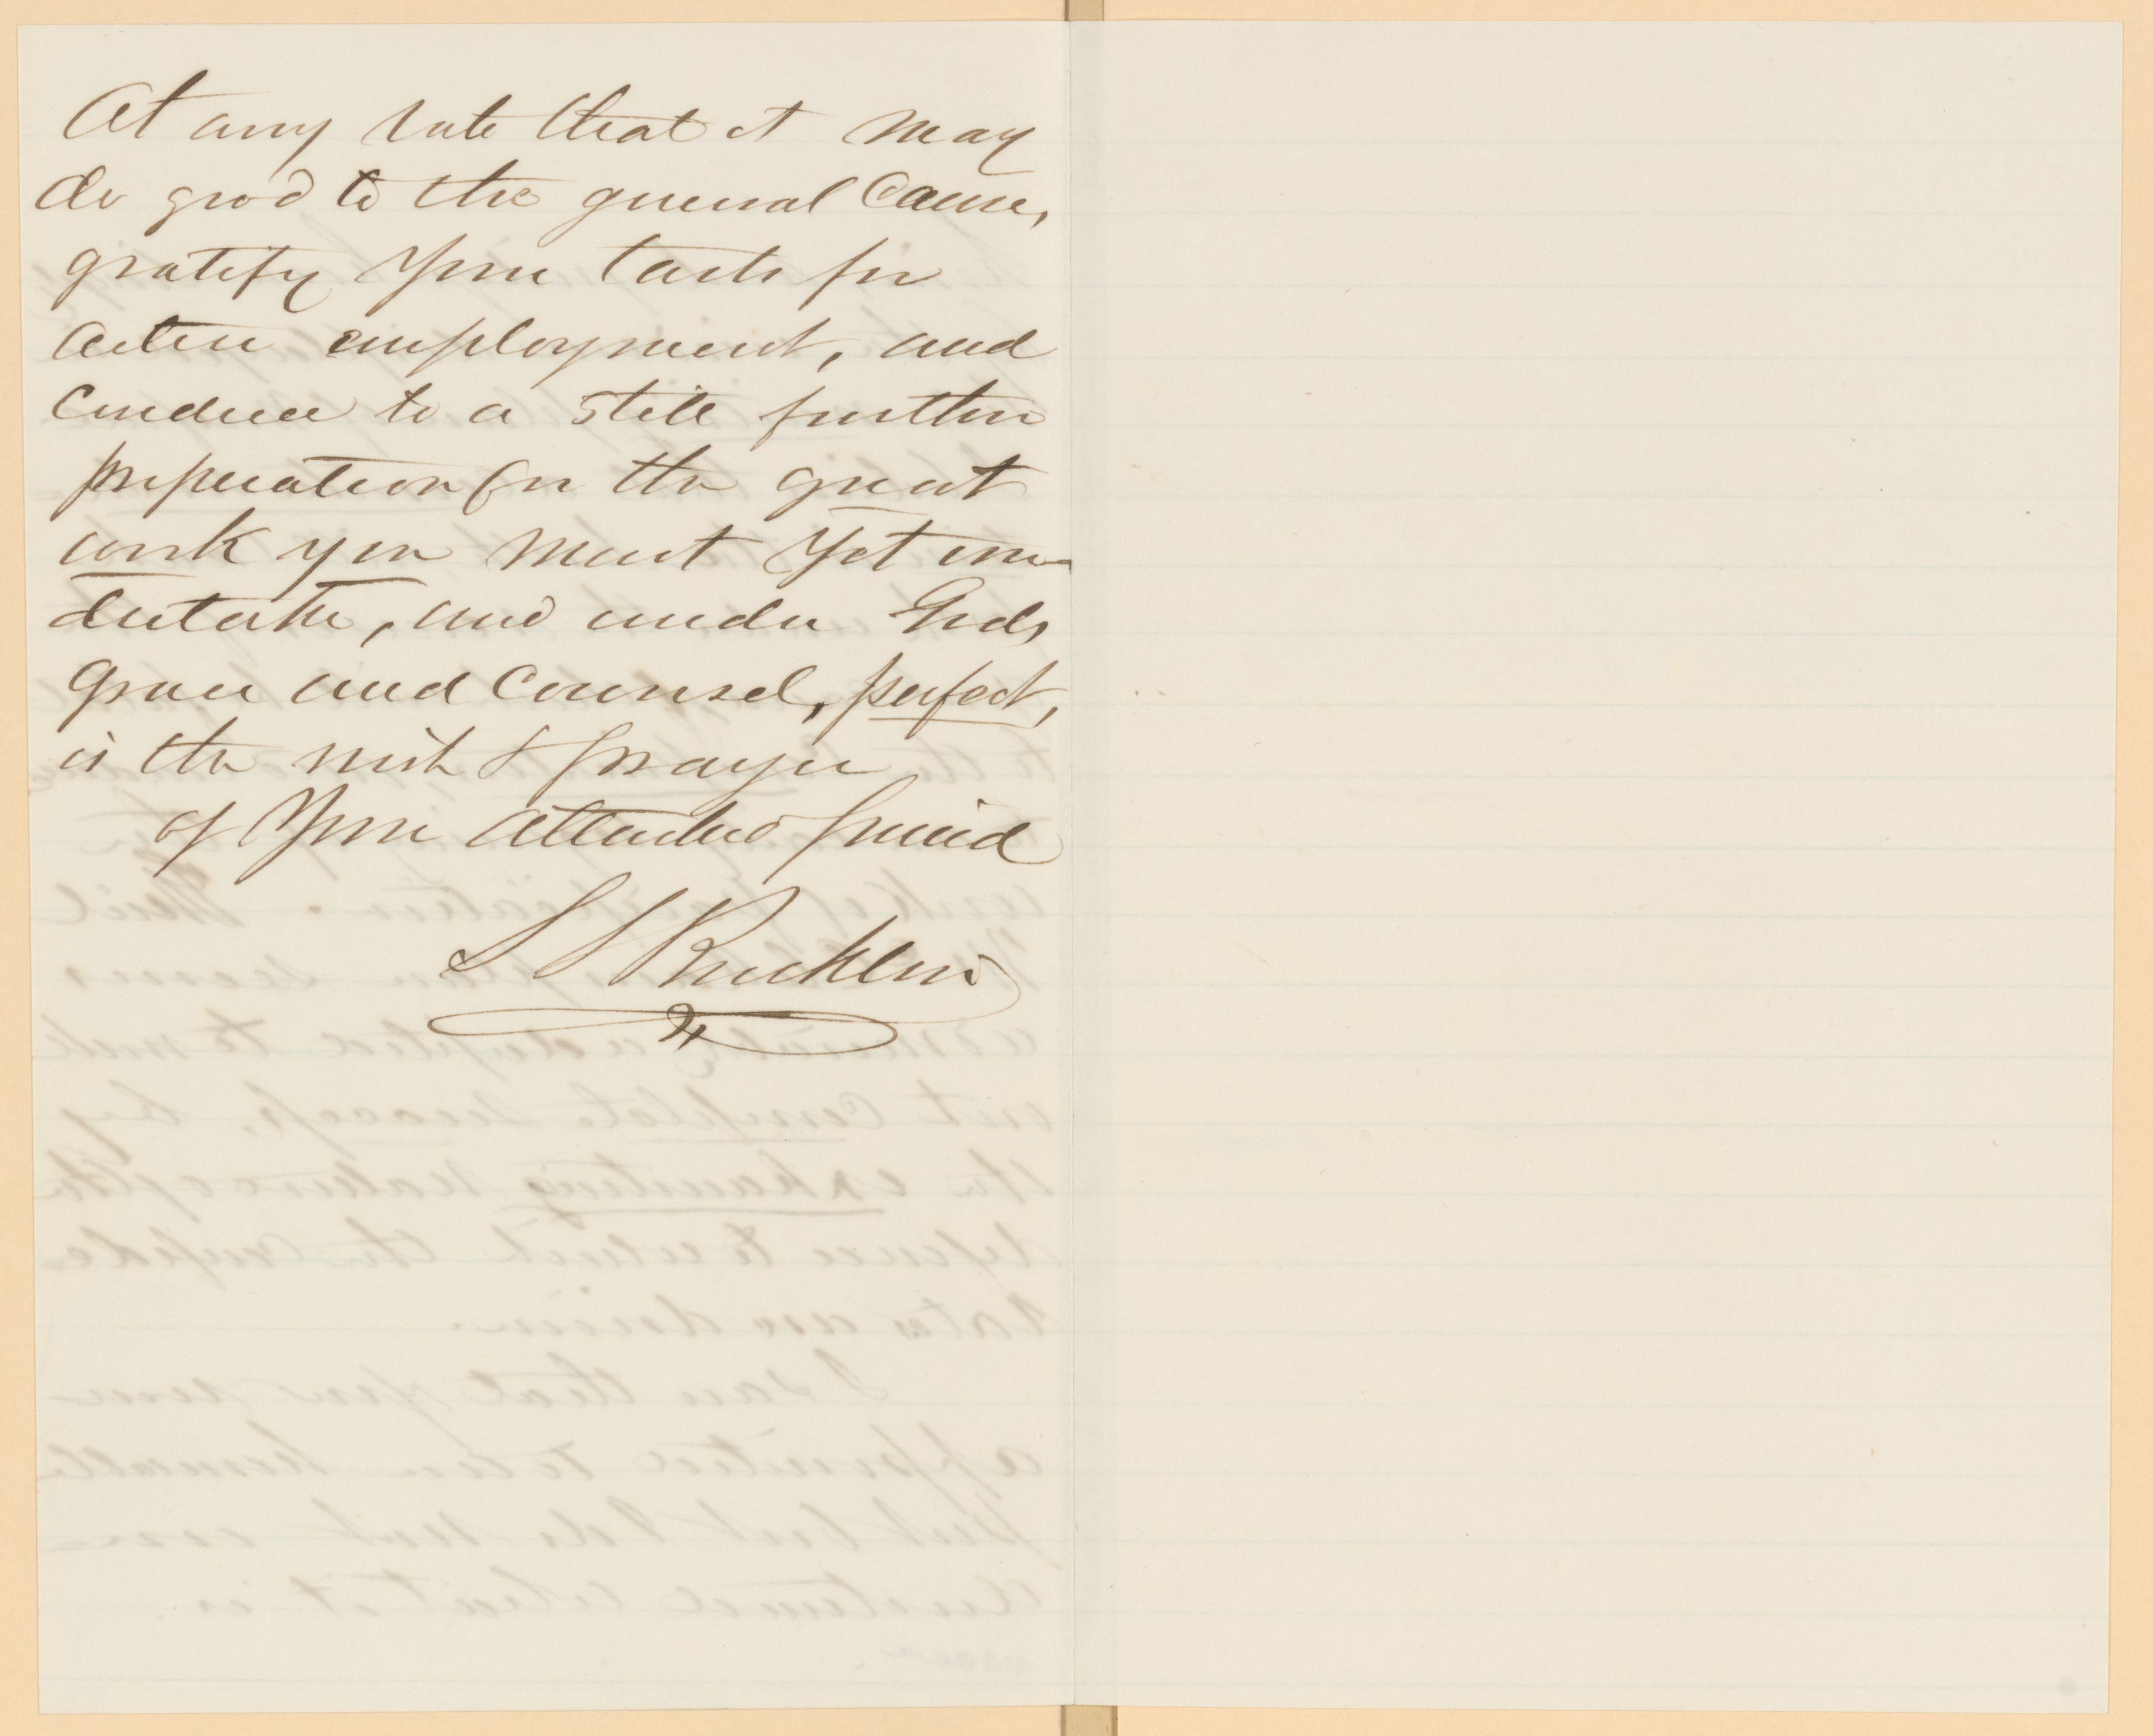 At any rate that it may
do good to the general Cause,
gratify your taste for
active employment, and
conduce to a still further
preperation for the great
work you must yet un-
dertake, and under Gods
grace and Counsel, perfect,
is the wish & prayer
of your attached friend
S S